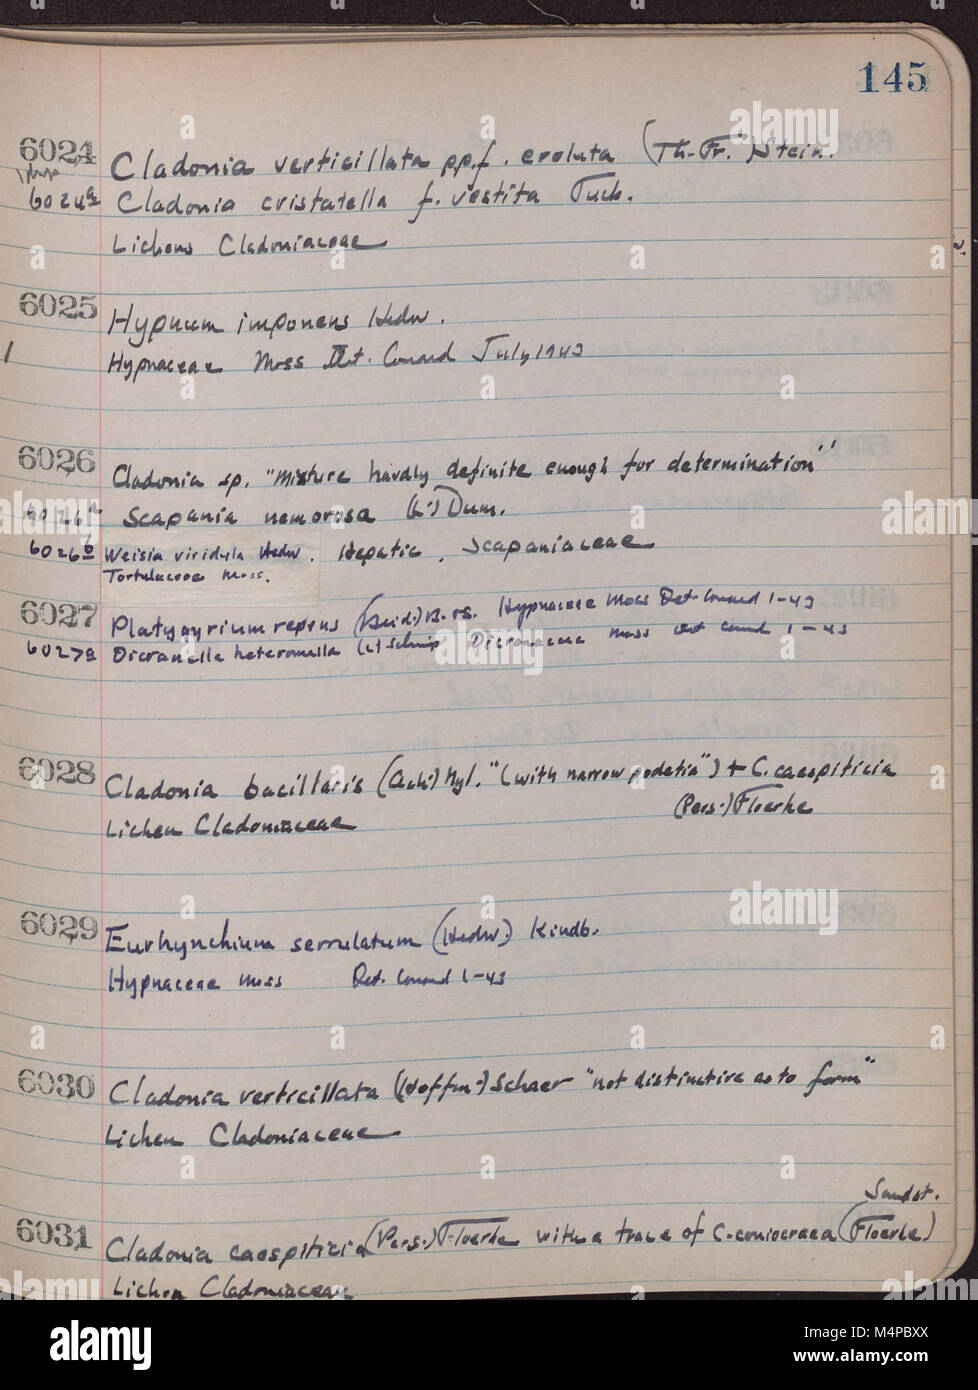 145
6024 Cladonia verticillata ppf. evoluta (Th. Fr.) Stein.
6024a Cladonia cristatella f. vestita Tuck.
Lichens Cladoniaceae
6025 Hypnum imponens Hedw.
1 Hypnaceae Moss Det. Conard July 1943
6026 Cladonia sp. "Mixture hardly definite enough for determination"
6026a Scapania nemorosa (L.) Dum.
6026b Weisia viridula Hedw. Hepatic, Scapaniaceae
Tortulaceae Moss.
6027 Platygyrium repens (Brid.) B. & S. Hypnaceae Moss Det. Conard 1-43
6027a Dicranella heteromella (L) Schimp Dicranaceae moss det Conard 1-43
6028 Cladonia bacillaris (Ach.) Nyl. "(with narrow podetia") + C. caespiticia
(Pers.) Floerke
Lichen Cladoniaceae
6029 Eurhynchium serrulatum (Hedw.) Kindb.
Hypnaceae Moss Det. Conard 1-43
6030 Cladonia verticillata (Hoffm.) Schaer "not distinctive as to form"
Lichen Cladoniaceae
Sandst.
6031 Cladonia caespiticia (Pers.) Floerke with a trace of C. coniocraea (Floerke)
Lichen Cladoniaceae
alamy
Image ID: M4PBXX
www.alamy.com